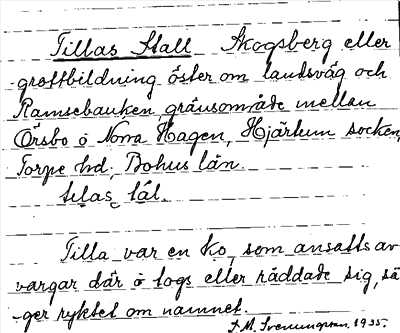 Tillas Stall Skogsberg eller
grottbildning öster om landsväg och
Ramsebauken, gränsområde mellan
Örsbo o Norra Hagen, Hjärtum socken,
Torpe hd, Bohus län.
tilas tål.
Tilla var en ko, som ansatts av
vargar där o togs eller räddade sig, sä
-ger ryktet om namnet.
1935.